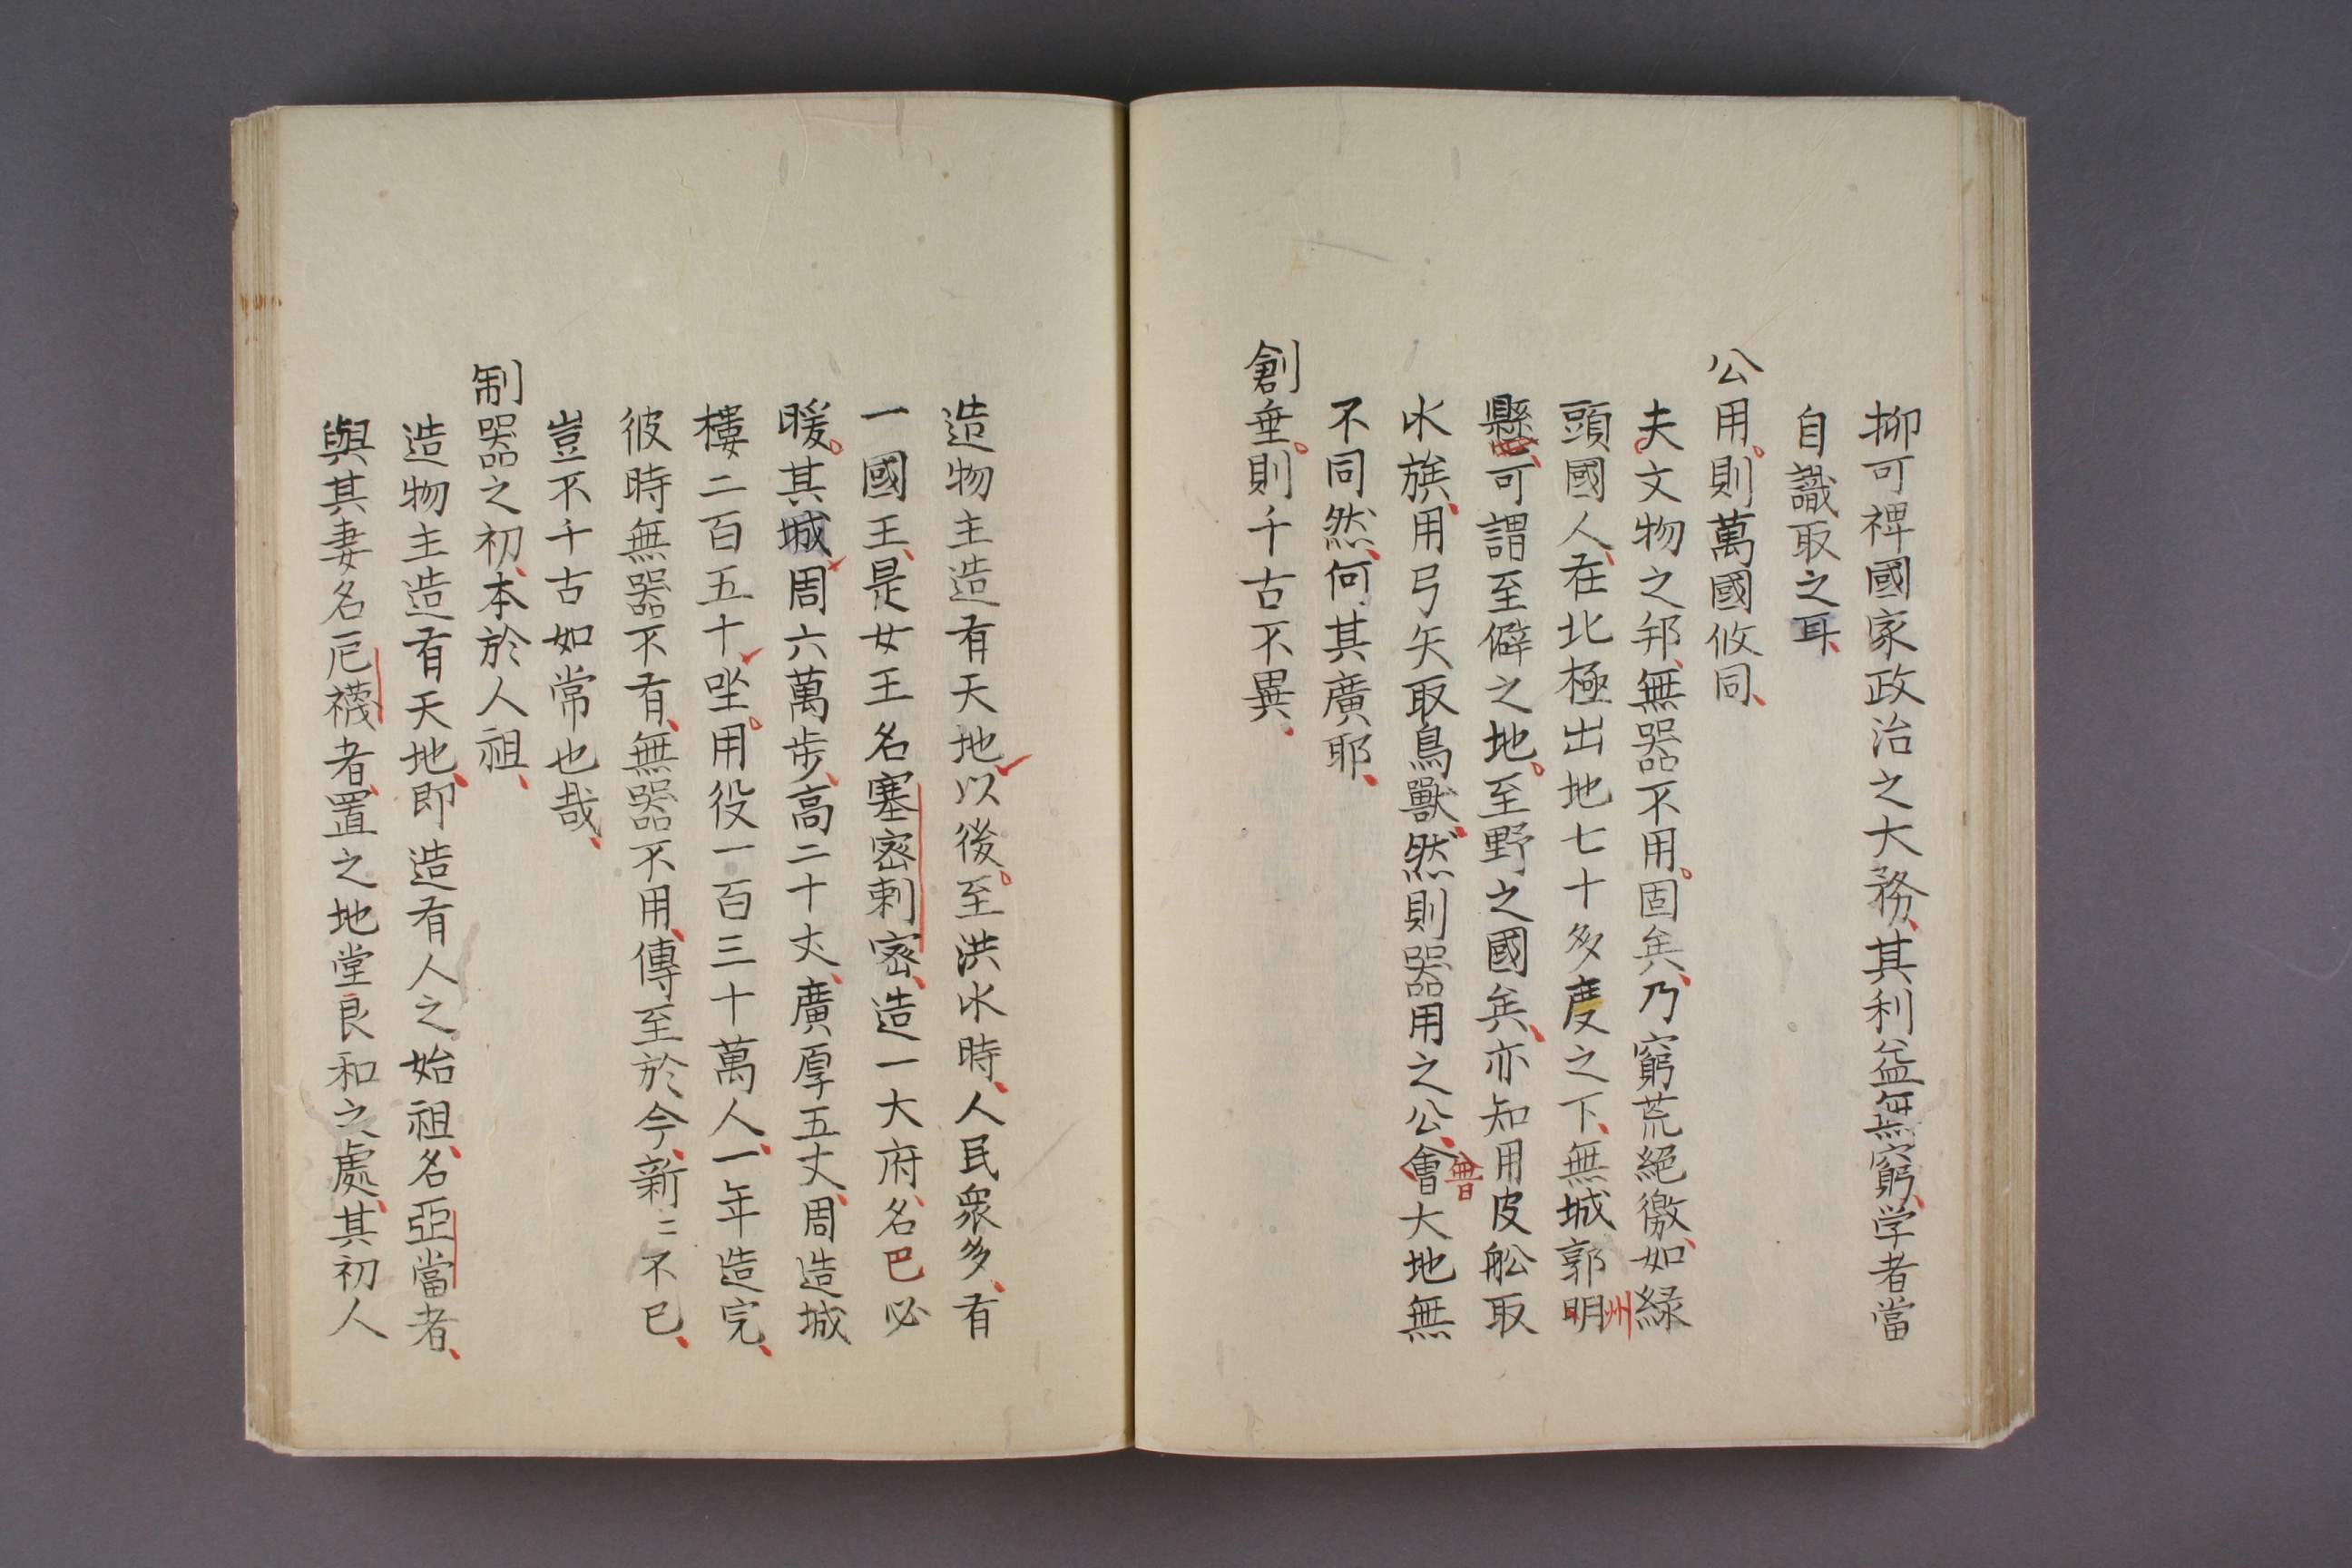 抑可禆國家政治之大務、其利益無窮、学者當
自識取之耳、
公用。則萬國攸同、
夫。文物之邦、無器不用。固矣、乃窮荒絕徼、如綠
頭國人、在北極出地七十多度之下、無城郭明州
懸、可謂至僻之地。至野之國矣、亦知用皮舩取
水族、用弓矢取鳥獸、然則器用之公、會普大地無
不同然、何其廣耶、
創垂。則千古不異、
造物主造有天地以後。至洪水時、人民衆多、有
一國王、是女王名塞密剌密、造一大府、名巴必
暖。其城周六萬步、高二十丈、廣厚五丈、周造城
樓二百五十、坐。用役一百三十萬人、一年造完、
彼時無器不有、無器不用、傳至於今、新〻不已、
豈不千古如常也哉、
制器之初、本於人祖、
造物主造有天地、即造有人之始祖、名亞當者、
與其妻名厄襪者、置之地堂良和之處、其初人